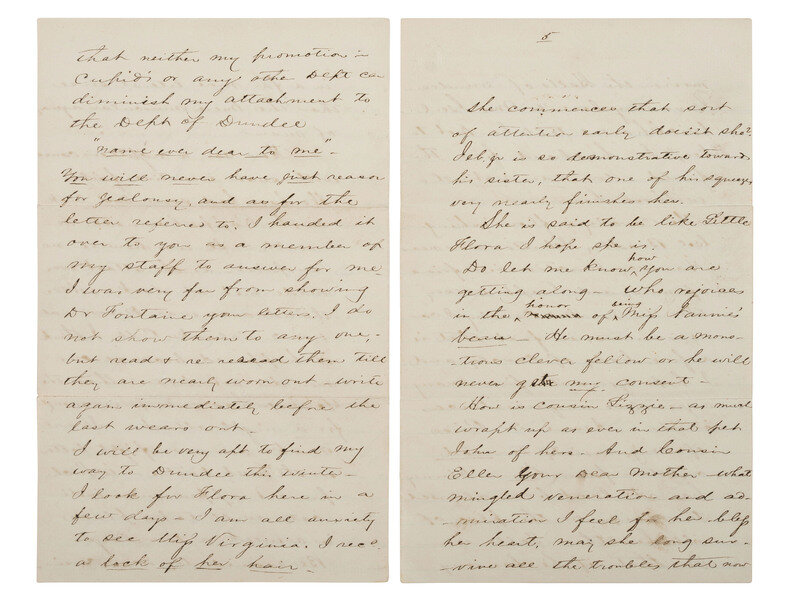 that neither my promotion in
Cupid's or any othe Dept can
diminish my attachment to
the Dept of Dundee
"name ever dear to me" -
You will never have just reason
for jealousy, and as for the
letter referred to. I handed it
over to you as a member of
my staff to answer for me
I was very far from showing
Dr Fontaine your letters. I do
not show them to any one, -
but read & re reread them till
they are nearly worn out - write
again immediately before the
last wears out -
I will be very apt to find my
way to Dundee this winter -
I look for Flora here in a
few days - I am all anxiety
to see Miss Virginia. I recd
a lock of her hair -
She commences that sort
of attention early doesn't she?
Jeb, jr is so demonstrative towards
his sister, that one of his squeezes
very nearly finishes her.
She is said to be like Little
Flora I hope she is.
Do. let me know how you are
getting along - who rejoices
in the honor of being Miss Nannie's
beau - He must be a mons-
-trous clever fellow or he will
never get my consent -
How is cousin Lizzie - as much
wrapt up as ever in that pet
John of hers. And Cousin
Ellen Your Dear Mother - what
mingled veneration and ad-
-miration I feel for her bless
her heart, may she long sur-
-vive all the troubles that now